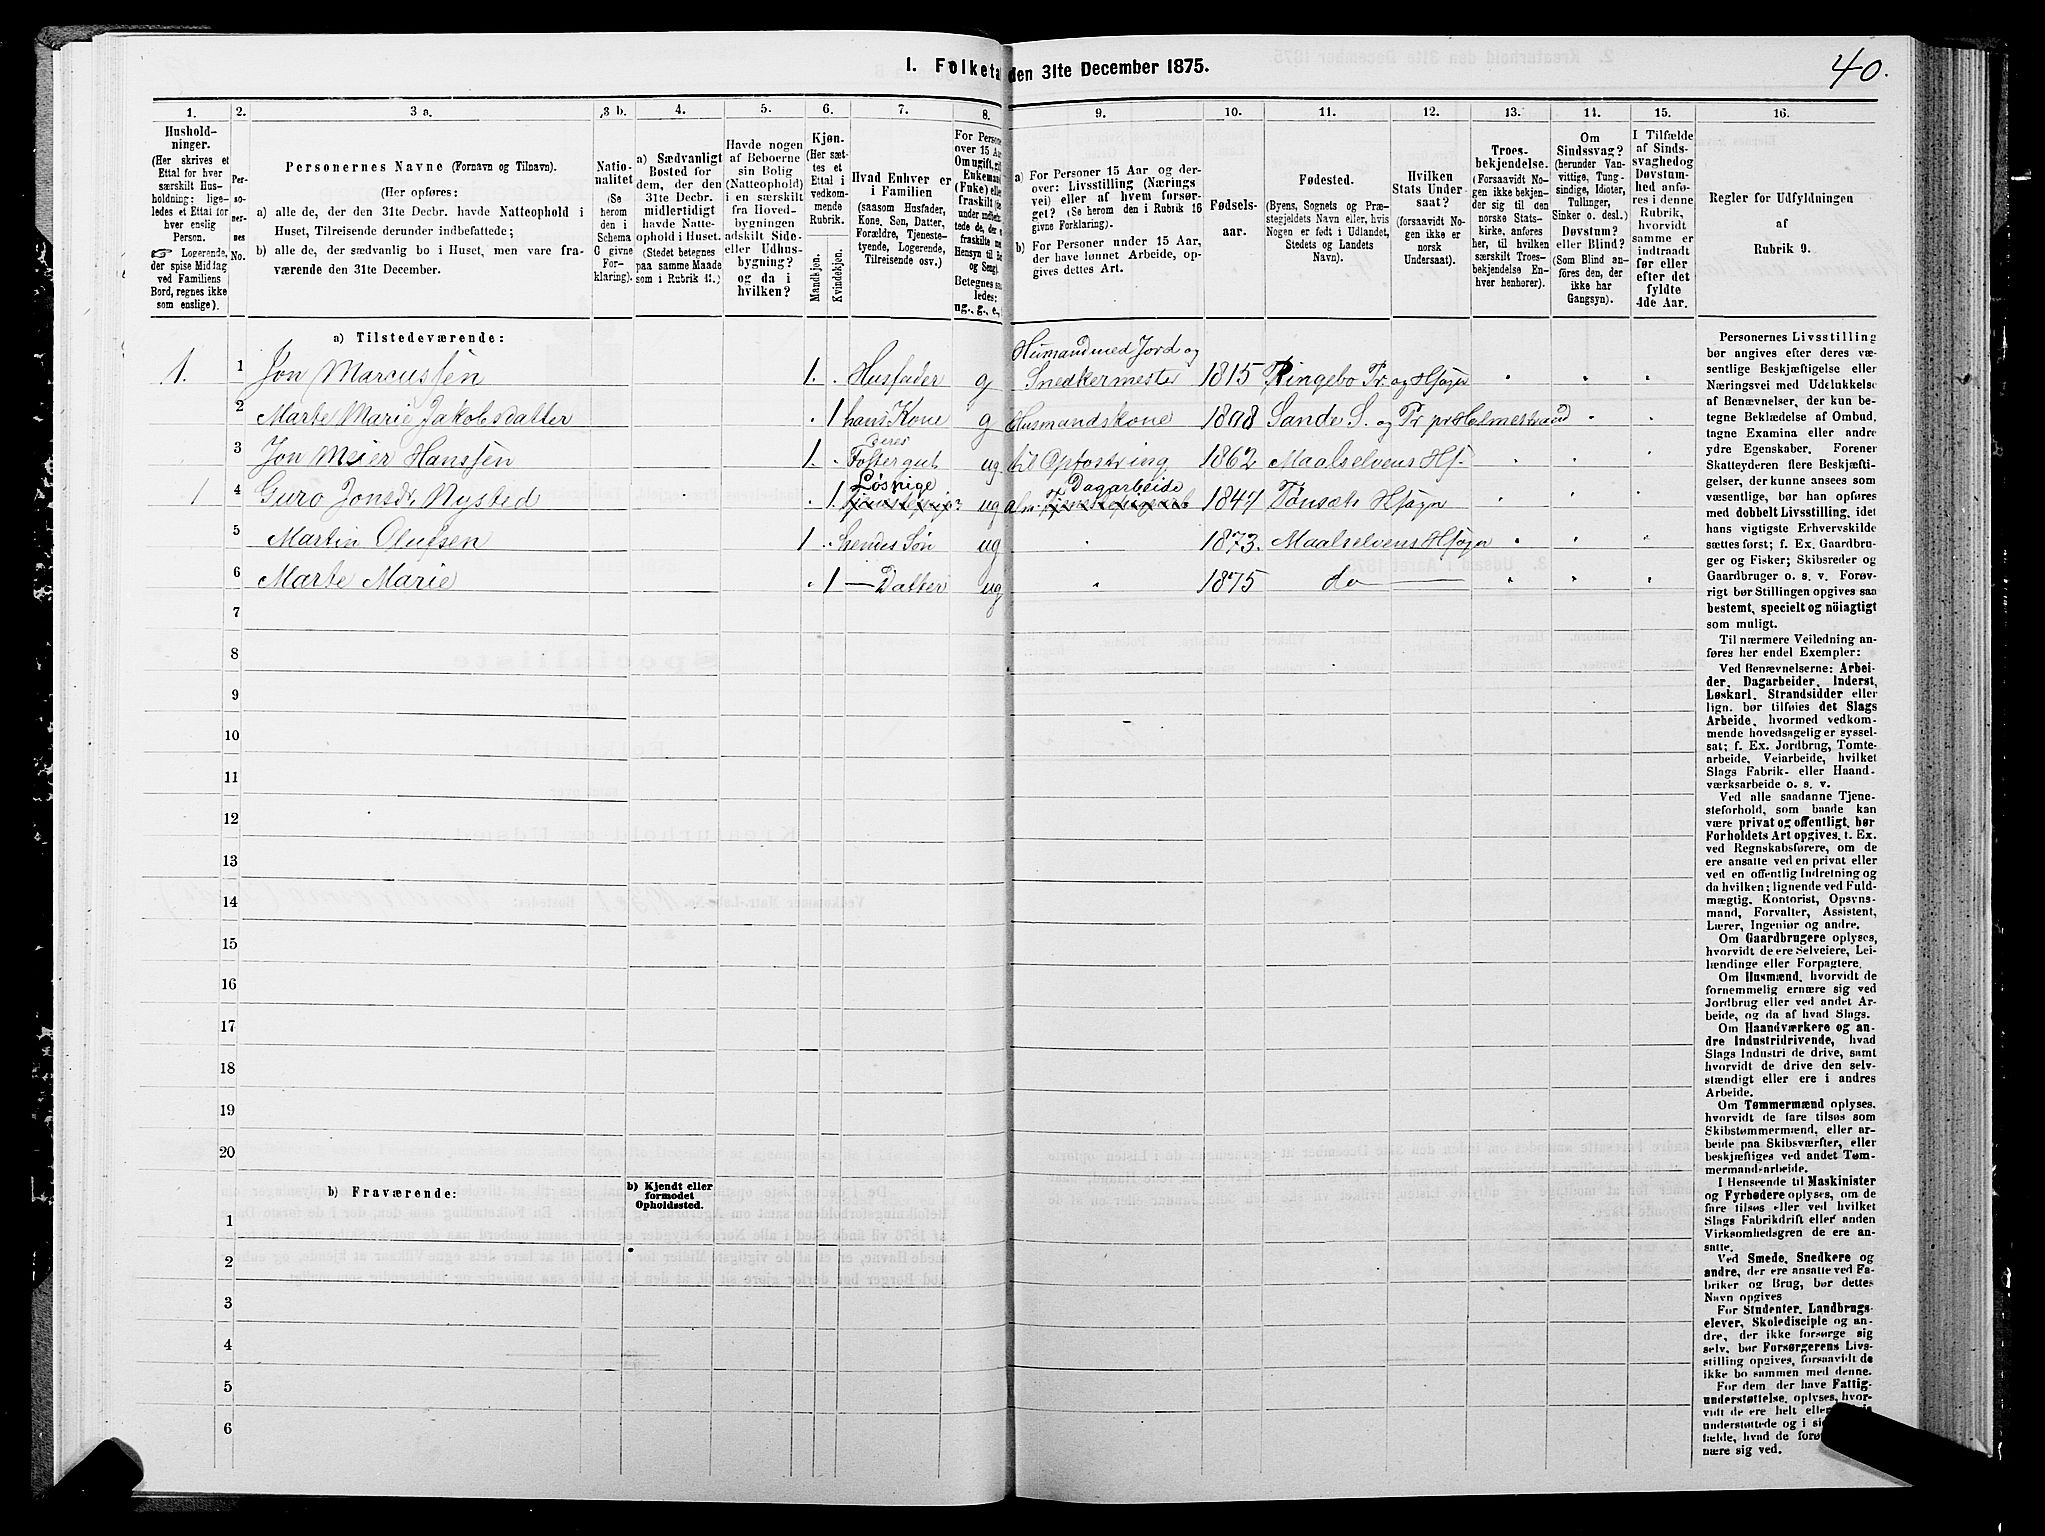 40.
I. Folketa den 31te December 1875.
1. 2. 3 a. 3 b. 4. 5. 6. 7. 8. 9. 10. 11. 12. 13. 14. 15. 16.
Hushold-
ninger.
(Her skrives et
Ettal for hver
særskilt Hus-
holdning; lige-
ledes et Ettal for
hver enslig
Person.
☞ Logerende,
der spise Middag
ved Familiens
Bord, regnes ikke
som enslige).
Per-
so-
ner-
nes
No.
Personernes Navne (Fornavn og Tilnavn).
(Her opføres:
a) alle de, der den 31te Decbr. havde Natteophold i
Huset, Tilreisende derunder indbefattede;
b) alle de, der sædvanlig bo i Huset, men vare fra-
værende den 31te December.
Natio-
nalitet
(Se
herom
den i
Schema
G givne
For-
klaring).
a) Sædvanligt
Bosted for
dem, der den
31te Decbr.
midlertidigt
havde Natte-
ophold i Huset.
(Stedet betegnes
paa samme Maade
som i Rubrik 11.)
Havde nogen
af Beboerne
sin Bolig
(Natteophold)
i en særskilt
fra Hoved-
bygningen
adskilt Side-
eller Udhus-
bygning?
og da i
hvilken?
Kjøn.
(Her sæt-
tes et
Ettal i
vedkom-
mende
Rubrik.
Mandkjøn.
Kvindekjøn.
Hvad Enhver er
i Familien
(saasom Husfader,
Kone, Søn, Datter,
Forældre, Tjeneste-
tyende, Logerende,
Tilreisende osv.)
For Person
over 15 Aar
Om ugift, gif
Enkemand
(Fuke) eller
fraskilt (he
under indbefat-
tede de, der e
fraskilte me
Hensyn til Bo
og Seng).
Betegnes saa
ledes:
ug., g., e.,
a) For Personer 15 Aar og der-
over: Livsstilling (Nærings
vei) eller af hvem forsør-
get? (Se herom den i Rubrik 16
givne Forklaring).
b) For Personer under 15 Aar,
der have lønnet Arbeide, op-
gives dettes Art.
Fødsels-
aar.
Fødested.
(Byens, Sognets og Præ-
stegjeldets Navn eller, hvis
Nogen er født i Udlandet,
Stedets og Landets
Navn).
Hvilken
Stats Under-
saat?
(forsaavidt No-
gen ikke er
norsk
Undersaat).
Troes-
bekjendelse.
(Forsaavidt No-
gen ikke bekjen-
der sig til den
norske Stats-
kirke, anføres
her, til hvilken
særskilt Troes-
bekjendelse En-
hver henhører).
Om
Sindssvag?
(herunder Van-
vittige, Tung-
sindige, Idioter,
Tullinger,
Sinker o. desl.)
Døvstum?
eller Blind?
(Som Blind an-
føres den, der
ikke har
Gangsyn).
I Tilfælde
af Sinds-
svaghed og
Døvstum-
hed anfø-
res i denne
Rubrik,
hvorvidt
samme er
indtraadt
før eller
efter det
fyldte
4de Aar.
Regler for Udfyldningen
af
Rubrik 9.
a) Tilstedeværende:
1. 1 Jon Marcussen 1. Husfader g Husmand med Jord og Snedkermester 1815 Ringebo Pr. og Hsogn
2 Marte Marie Jakobsdatter 1 hans Kone g Husmandskone 1808 Sande S. og Pr pr Holmestrand
3 Jon Meier Hanssen 1. deres Fostergut ug til Opfostring 1862 Maalselvens Hs.
1 4 Guro Jonsdr Nysted 1. Løspige ug Dagarbeide 1847 Tønsæts Hsogn
5 Martin Olussen 1 hendes Søn ug 1873. Maalselvens Hsogn
6 Marte Marie 1 — Datter ug 1875 do —
7
8
9
10
11
12
13
14
15
16
17
18
19
20
b) Fraværende:
b) Kjendt eller
formodet
Opholdssted.
1
2
3
4
5
6
Personernes Livsstilling
bør angives efter deres væ-
sentlige Beskjæftigelse eller
Næringsvei med Udelukkelse
af Benævnelser, der kun be-
tegne Beklædelse af Ombud,
tagne Examina eller andre
ydre Egenskaber. Forener
Skatteyderen flere Beskjæfti-
gelser, der kunne ansees som
væsentlige, bør han opføres
med dobbelt Livsstilling, idet
hans vigtigste Erhvervskilde
sættes først; f. Ex. Gaardbru-
ger og Fisker; Skibsreder og
Gaardbruger o. s. v. Forøv-
rigt bør Stillingen opgives saa
bestemt, specielt og nöiagtigt
som muligt.
Til nærmere Veiledning an-
føres her endel Exempler:
Ved Benævnelserne: Arbei-
der, Dagarbeider, Inderst,
Løskarl, Strandsidder eller
lign. bør tilføies det Slags
Arbeide, hvormed vedkom-
mende hovedsagelig er syssel-
sat; f. Ex. Jordbrug, Tomte-
arbeide, Veiarbeide, hvilket
Slags Fabrik- eller Haand-
værksarbeide o. s. v.
Ved alle saadanne Tjene-
steforhold, som baade kan
være privat og offentligt, bør
Forholdets Art opgives, t. Ex.
ved Regnskabsførere, om de
ere ansatte ved en privat eller
ved en offentlig Indretning og
da hvilken; lignende ved Fuld-
mægtig, Kontorist, Opsyns-
mand, Forvalter, Assistent,
Lærer, Ingeniør og andre.
Om Gaardbrugere oplyses,
hvorvidt de ere Selveiere, Lei-
lændinge eller Forpagtere.
Om Husmænd, hvorvidt de
fornemmelig ernære sig ved
Jordbrug eller ved andet Ar-
beide, og da af hvad Slags.
Om Haandværkere og an-
dre Industridrivende, hvad
Slags Industri de drive, samt
hvorvidt de drive den selv-
stændigt eller ere i andres
Arbeide.
Om Tømmermænd oplyses,
hvorvidt de fare tilsøs som
Skibstømmermænd, eller ar-
beide paa Skibsværfter, eller
beskjæftiges ved andet Tøm-
mermandsarbeide.
I Henseende til Maskinister
og Fyrbødere oplyses, om de
fare tilsøs eller ved hvilket
Slags Fabrikdrift eller anden
Virksomhedsgren de ere an-
satte.
Ved Smede, Snedkere og
andre, der ere ansatte ved Fa-
briker og Brug, bør dettes
Navn opgives
For Studenter, Landbrugs-
elever, Skoledisciple og an-
dre, der ikke forsørge sig
selv, bør Forsørgerens Livs-
stilling opgives, forsaavidt de
ikke bo sammen med denne.
For dem, der have Fattig-
understøttelse, oplyses, hvor-
vidt de ere helt eller
understøttede og i si
fælde, hvad de forø
nære sig ved.